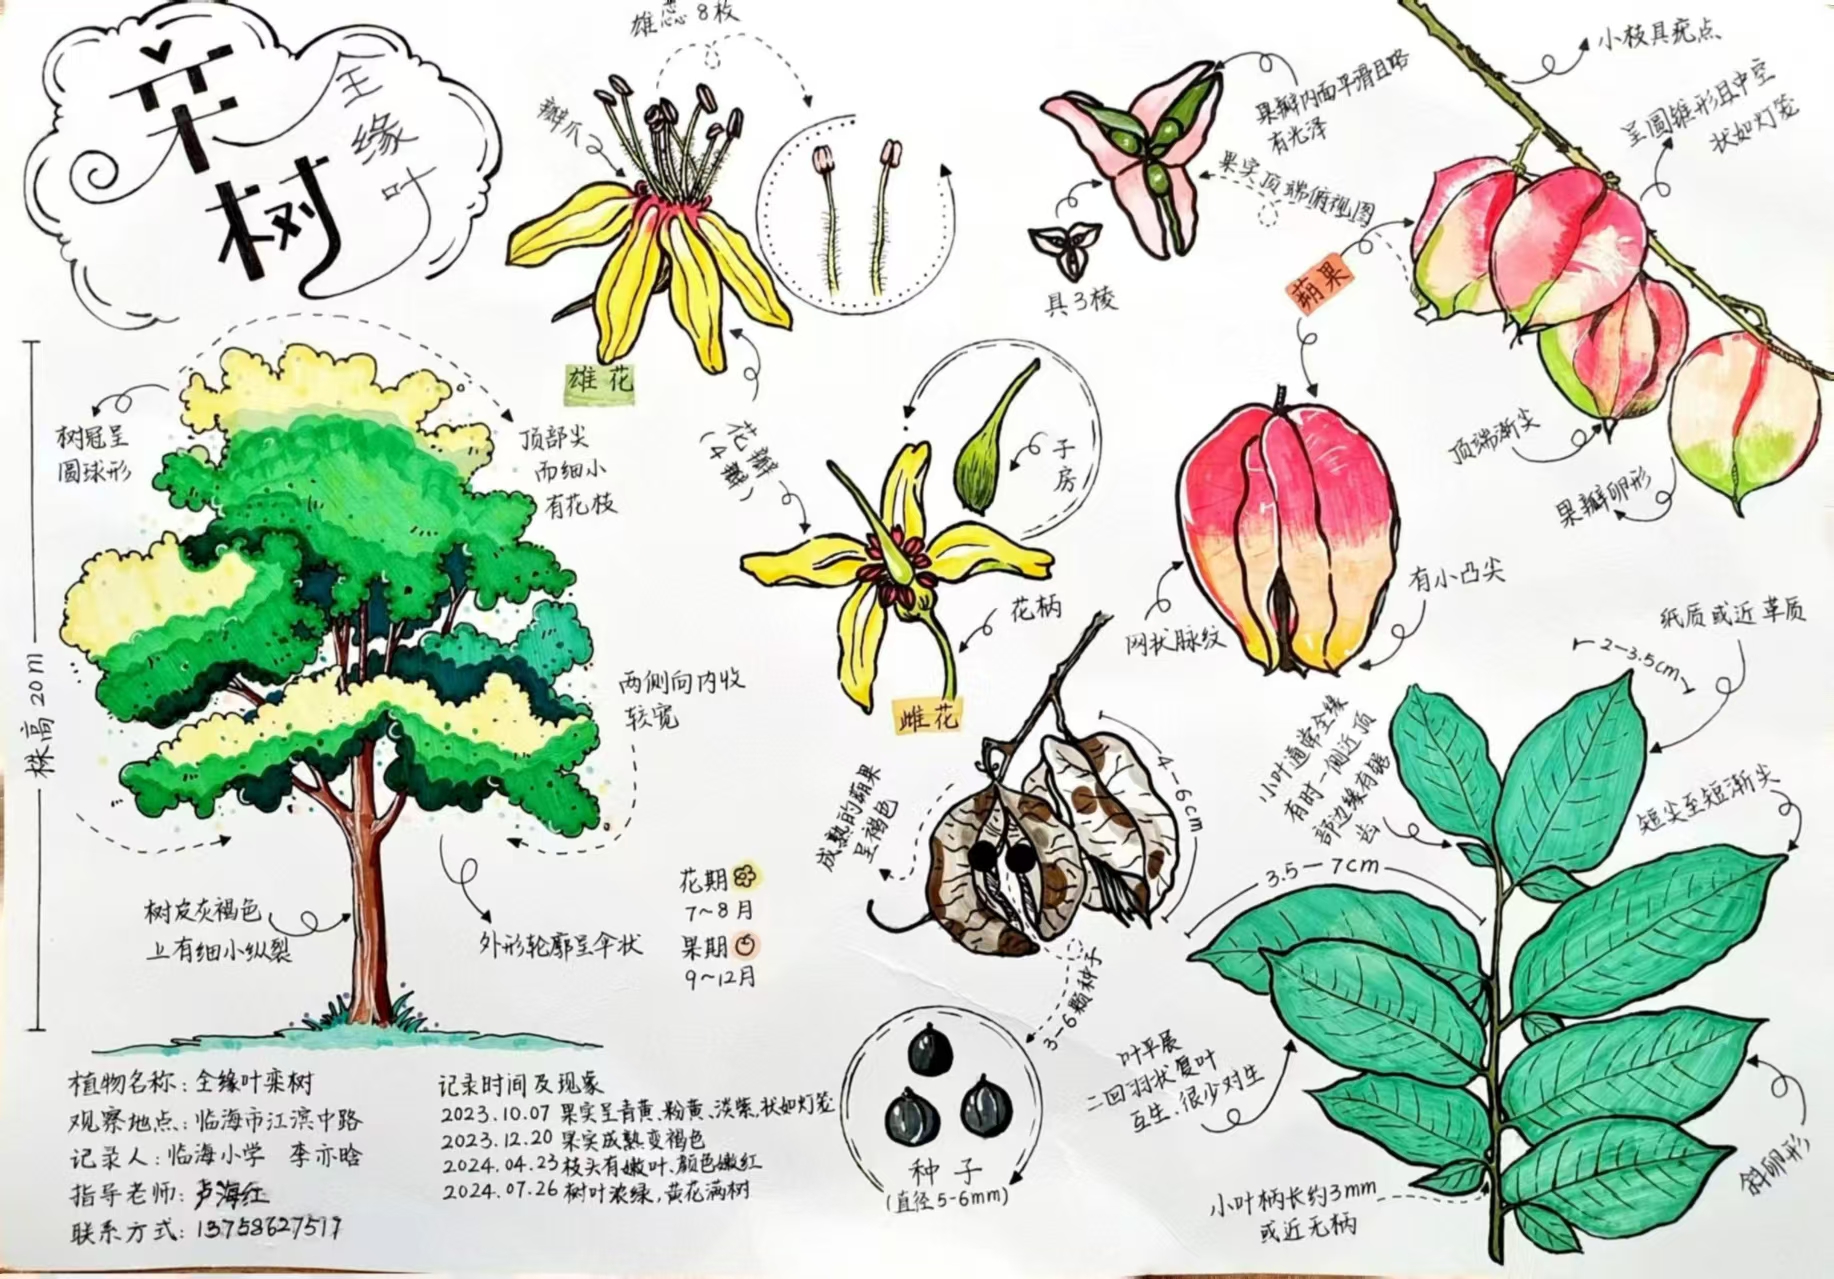 栾树
全缘叶
雄蕊8枚
瓣爪
雄花
花瓣
(4瓣)
子房
花柄
雌花
果瓣内面平滑且略
有光泽
果实顶端俯视图
具3棱
蒴果
小枝具疣点
呈圆锥形且中空
状如灯笼
顶端渐尖
果瓣卵形
网状脉纹
有小凸尖
株高20m
树冠呈
圆球形
顶部尖
而细小
有花枝
两侧向内收
较宽
树皮灰褐色
上有细小纵裂
外形轮廓呈伞状
花期
7~8月
果期
9~12月
成熟的蒴果
呈褐色
4-6cm
3-6颗种子
种子
(直径5-6mm)
纸质或近革质
2-3.5cm
小叶通常全缘
有时一侧近顶
部边缘有锯
齿
短尖至短渐尖
3.5-7cm
叶平展
二回羽状复叶
互生、很少对生
斜卵形
小叶柄长约3mm
或近无柄
植物名称：全缘叶栾树
观察地点：临海市江滨中路
记录人：临海小学 李亦晗
指导老师：卢海红
联系方式：13758627517
记录时间及现象
2023.10.07 果实呈青黄、粉黄、淡紫、状如灯笼
2023.12.20 果实成熟变褐色
2024.04.23 枝头有嫩叶、颜色嫩红
2024.07.26 树叶浓绿，黄花满树